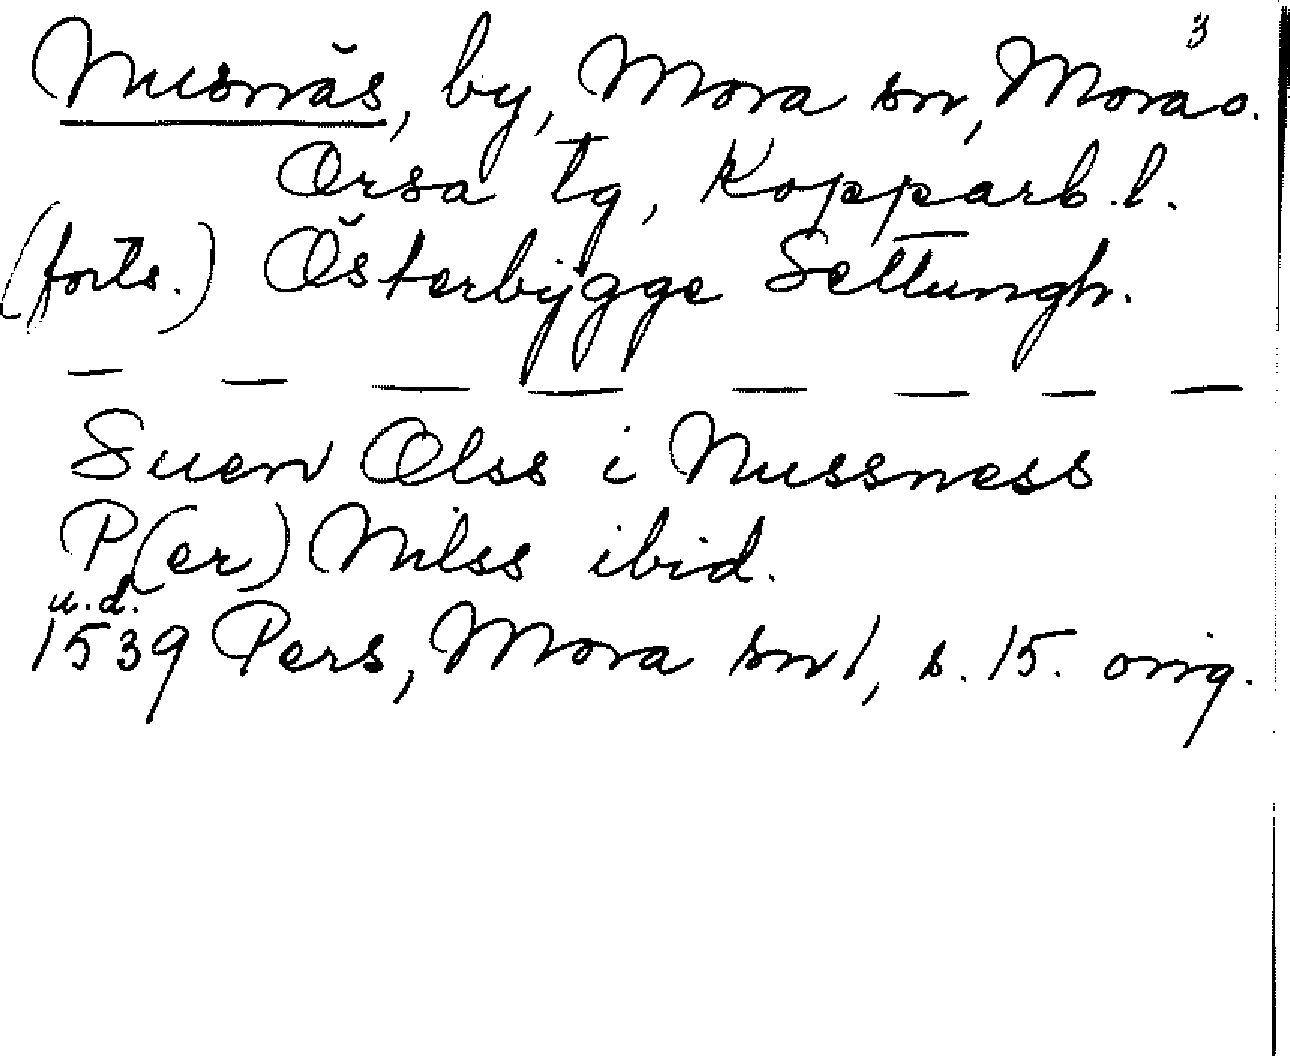 3
Nusnäs, by, Mora sn, Mora o.
Orsa tg, Kopparb. l.
(forts.) Österbygge Settungh.
— — — — — — — —
Suen Olss i Nussness
P(er) Nilss ibid.
u.d.
1539 Pers, Mora sn 1, s. 15. orig.